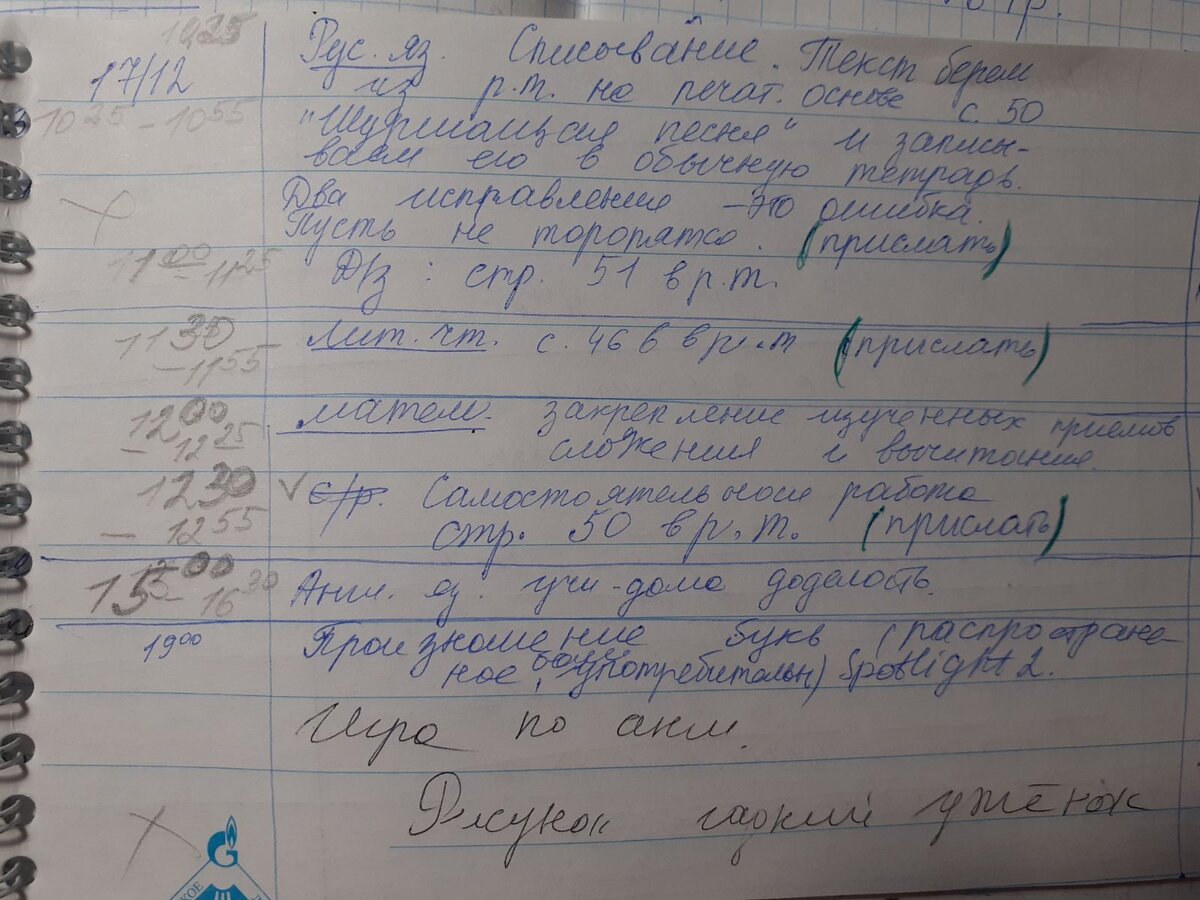 10 25
17/12
Рус. яз. Списывание. Текст берем
из р.т. на печат. основе с. 50
10 25 - 10 55
"Шуршащая песня" и записы-
ваем его в обычную тетрадь.
Два исправления - это ошибка.
Пусть не торопятся. (прислать)
11 00 - 11 25
Д/з : стр. 51 в р.т.
11 30
- 11 55
Лит. чт. с. 46 в р.т (прислать)
12 00
- 12 25
матем. закрепление изученных приемов
сложения и вычитания.
12 30
- 12 55
с/р. Самостоятельная работа
стр. 50 в р.т. (прислать)
15 00
- 16 30
Англ. яз. учи-дома доделать.
19 00
Произношение букв (распростране-
ное, более употребительн) Spotlight 2.
Игра по англ.
Рисунок гадкий утёнок